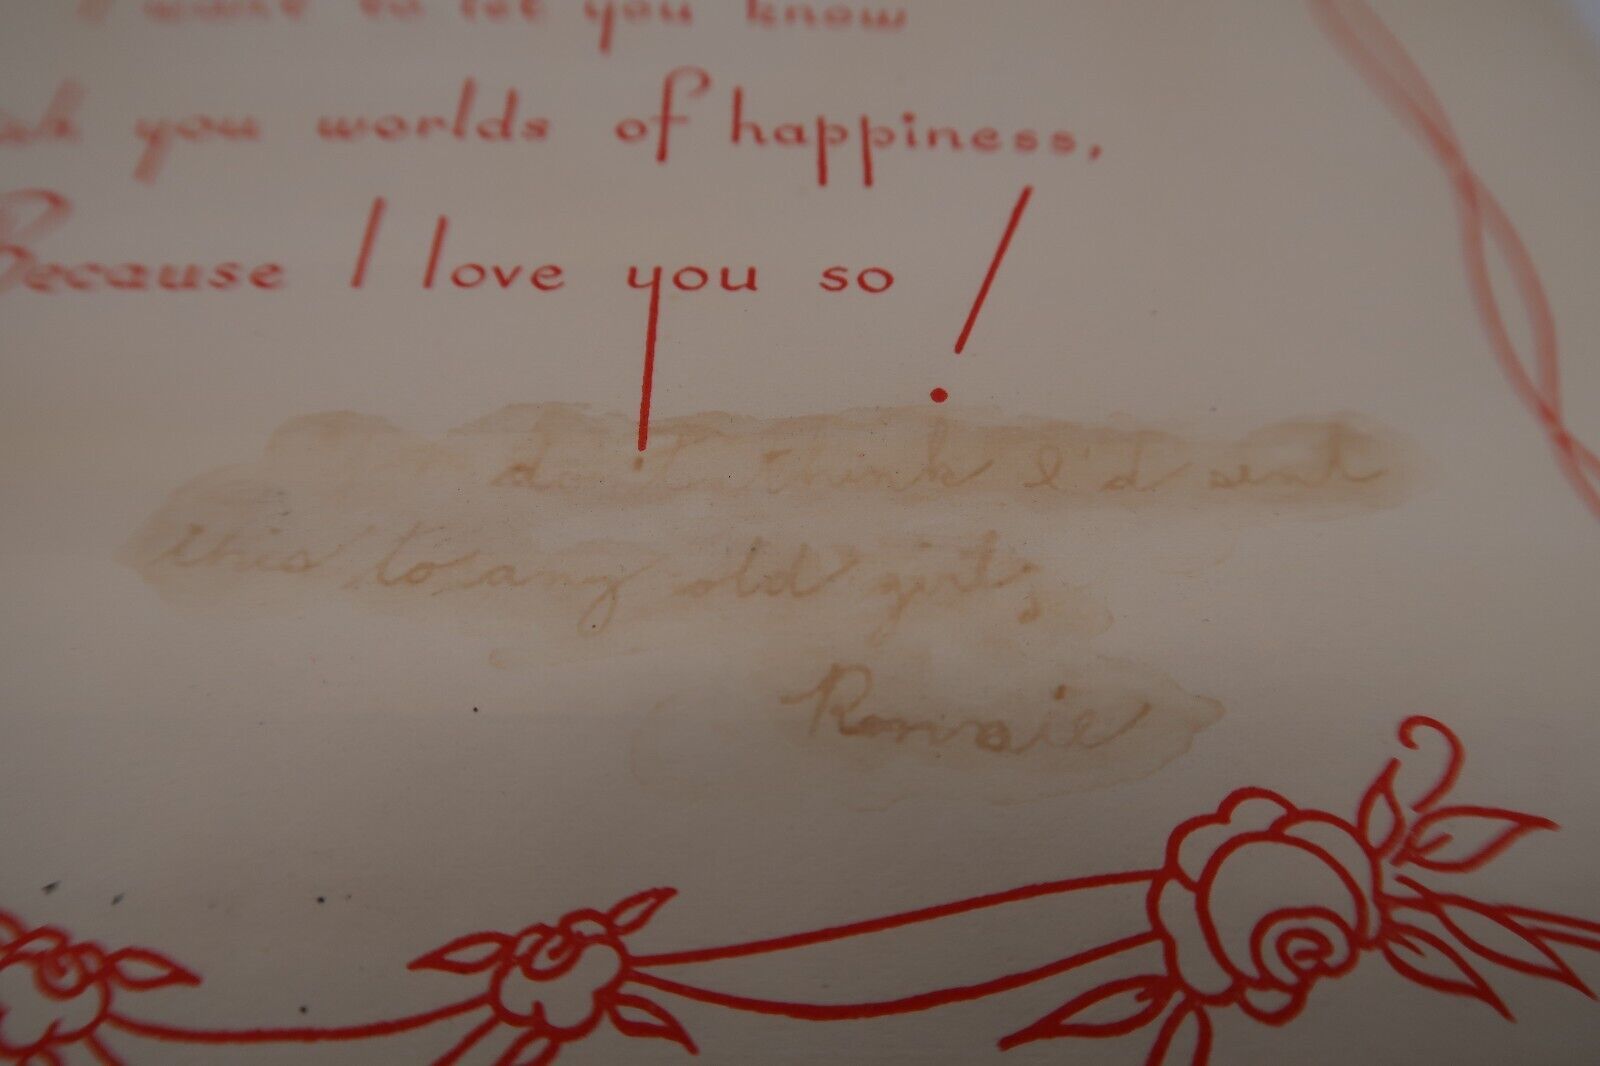 I want to let you know
you worlds of happiness,
Because I love you so!
don't think I'd sent
this to any old girl,
Ronnie